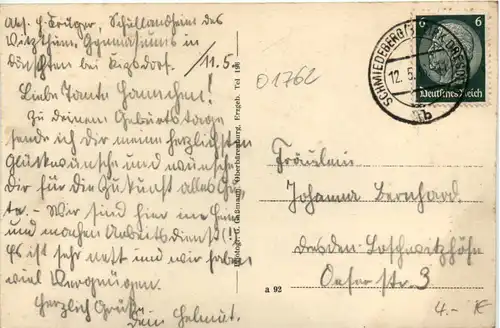 Abs. J. Krüger, Schullandheim des
Vitzthum Gymnasiums in
bei Kipsdorf.
11.5
Liebe Tante Hannchen!
Zu deinem Geburtstage
sende ich dir meine herzlichsten
Glückwünsche und wünsche
dir für die Zukunft alles Gu-
te. – Wir sind hier im Heim
und machen Arbeitsdienst!!
Es ist sehr nett und wir haben
viel Vergnügen.
Herzlich Grüßt
Dein Helmut.
Oberbärenburg, Erzgeb. Tel
a 92
01762
SCHMIEDEBERG
12.5.
b
6 6
Deutsches Reich
Fräulein
Johanna Bernhard.
Dresden-Loschwitzhöhe
Oeserstr. 3
4.- €